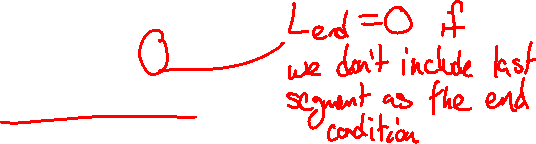 0
Lend = 0 if
we don't include last
segment as the end
condition